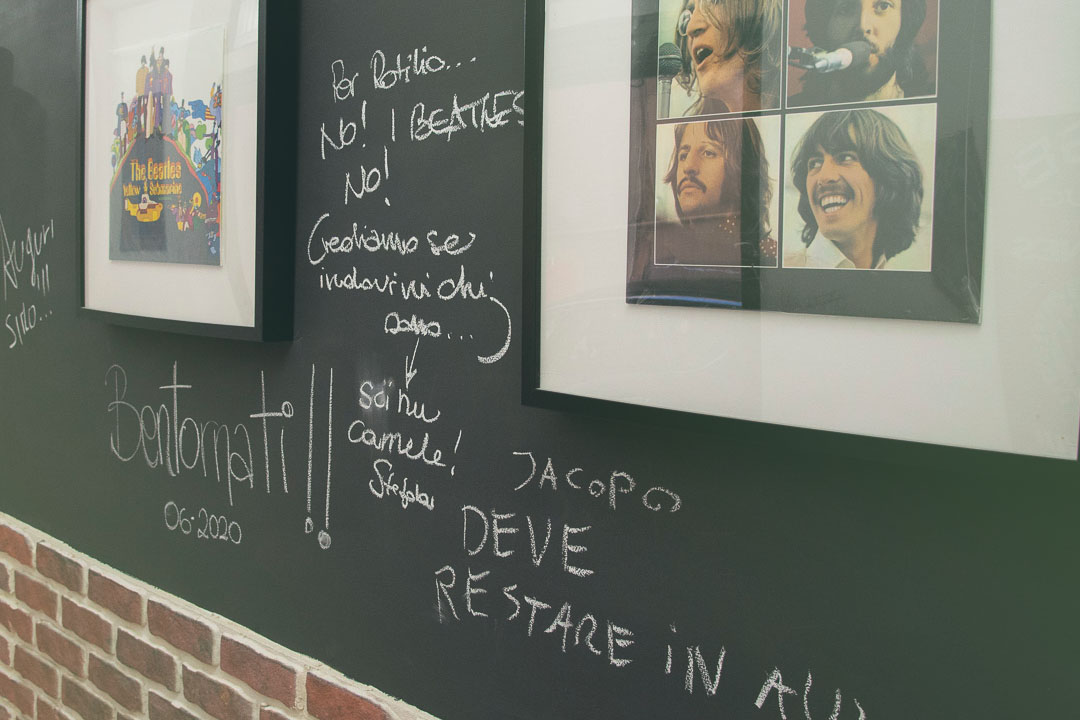 Auguri
!!!
The Beatles
Yellow Submarine
Per Rotilio...
No! I BEATLES
No!
(Crediamo se
indovini chi
sono...)
Sei nu
camele!
Bentornati!!
06·2020
JACOPO
DEVE
RESTARE iN